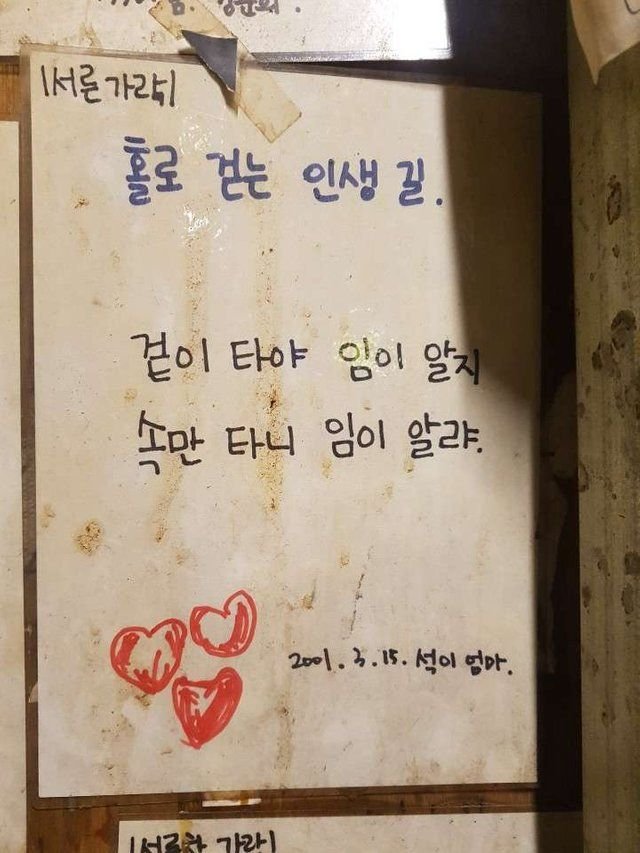 정준희.
|서른 가락|
홀로 걷는 인생 길.
겉이 타야 임이 알지
속만 타니 임이 알랴.
2001. 3. 15. 석이 엄마.
|서른한 가락|